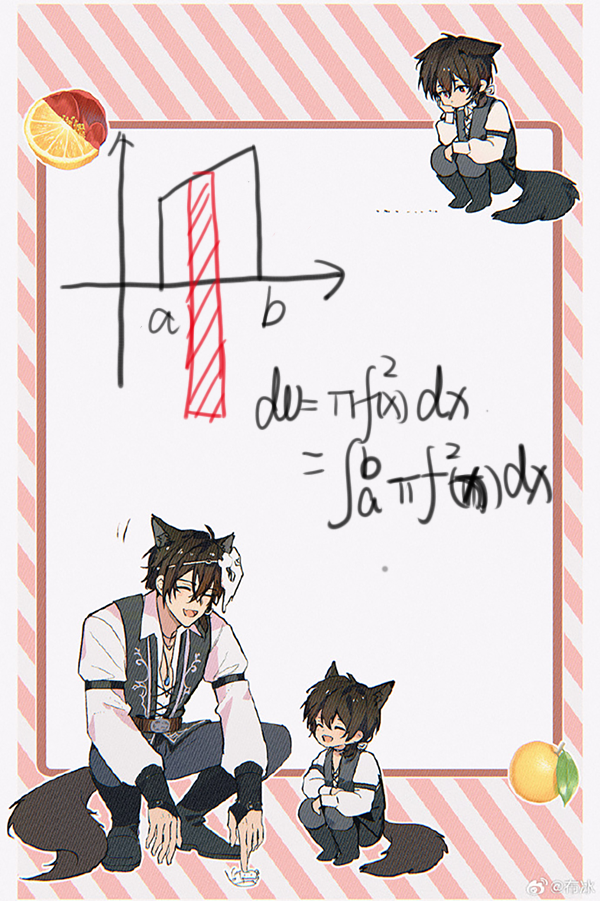 a
b
dv = πf²(x) dx
= ∫ₐᵇ πf²(x) dx
@布冰